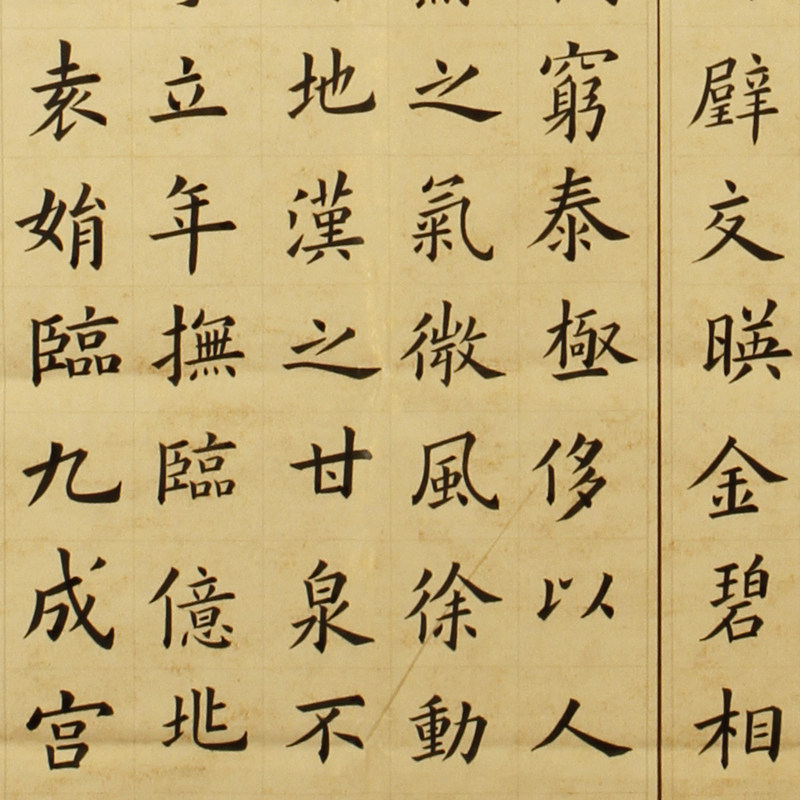 璧交暎金碧相
窮泰極侈以人
之氣微風徐動
地漢之甘泉不
立年撫臨億兆
袁娟臨九成宮